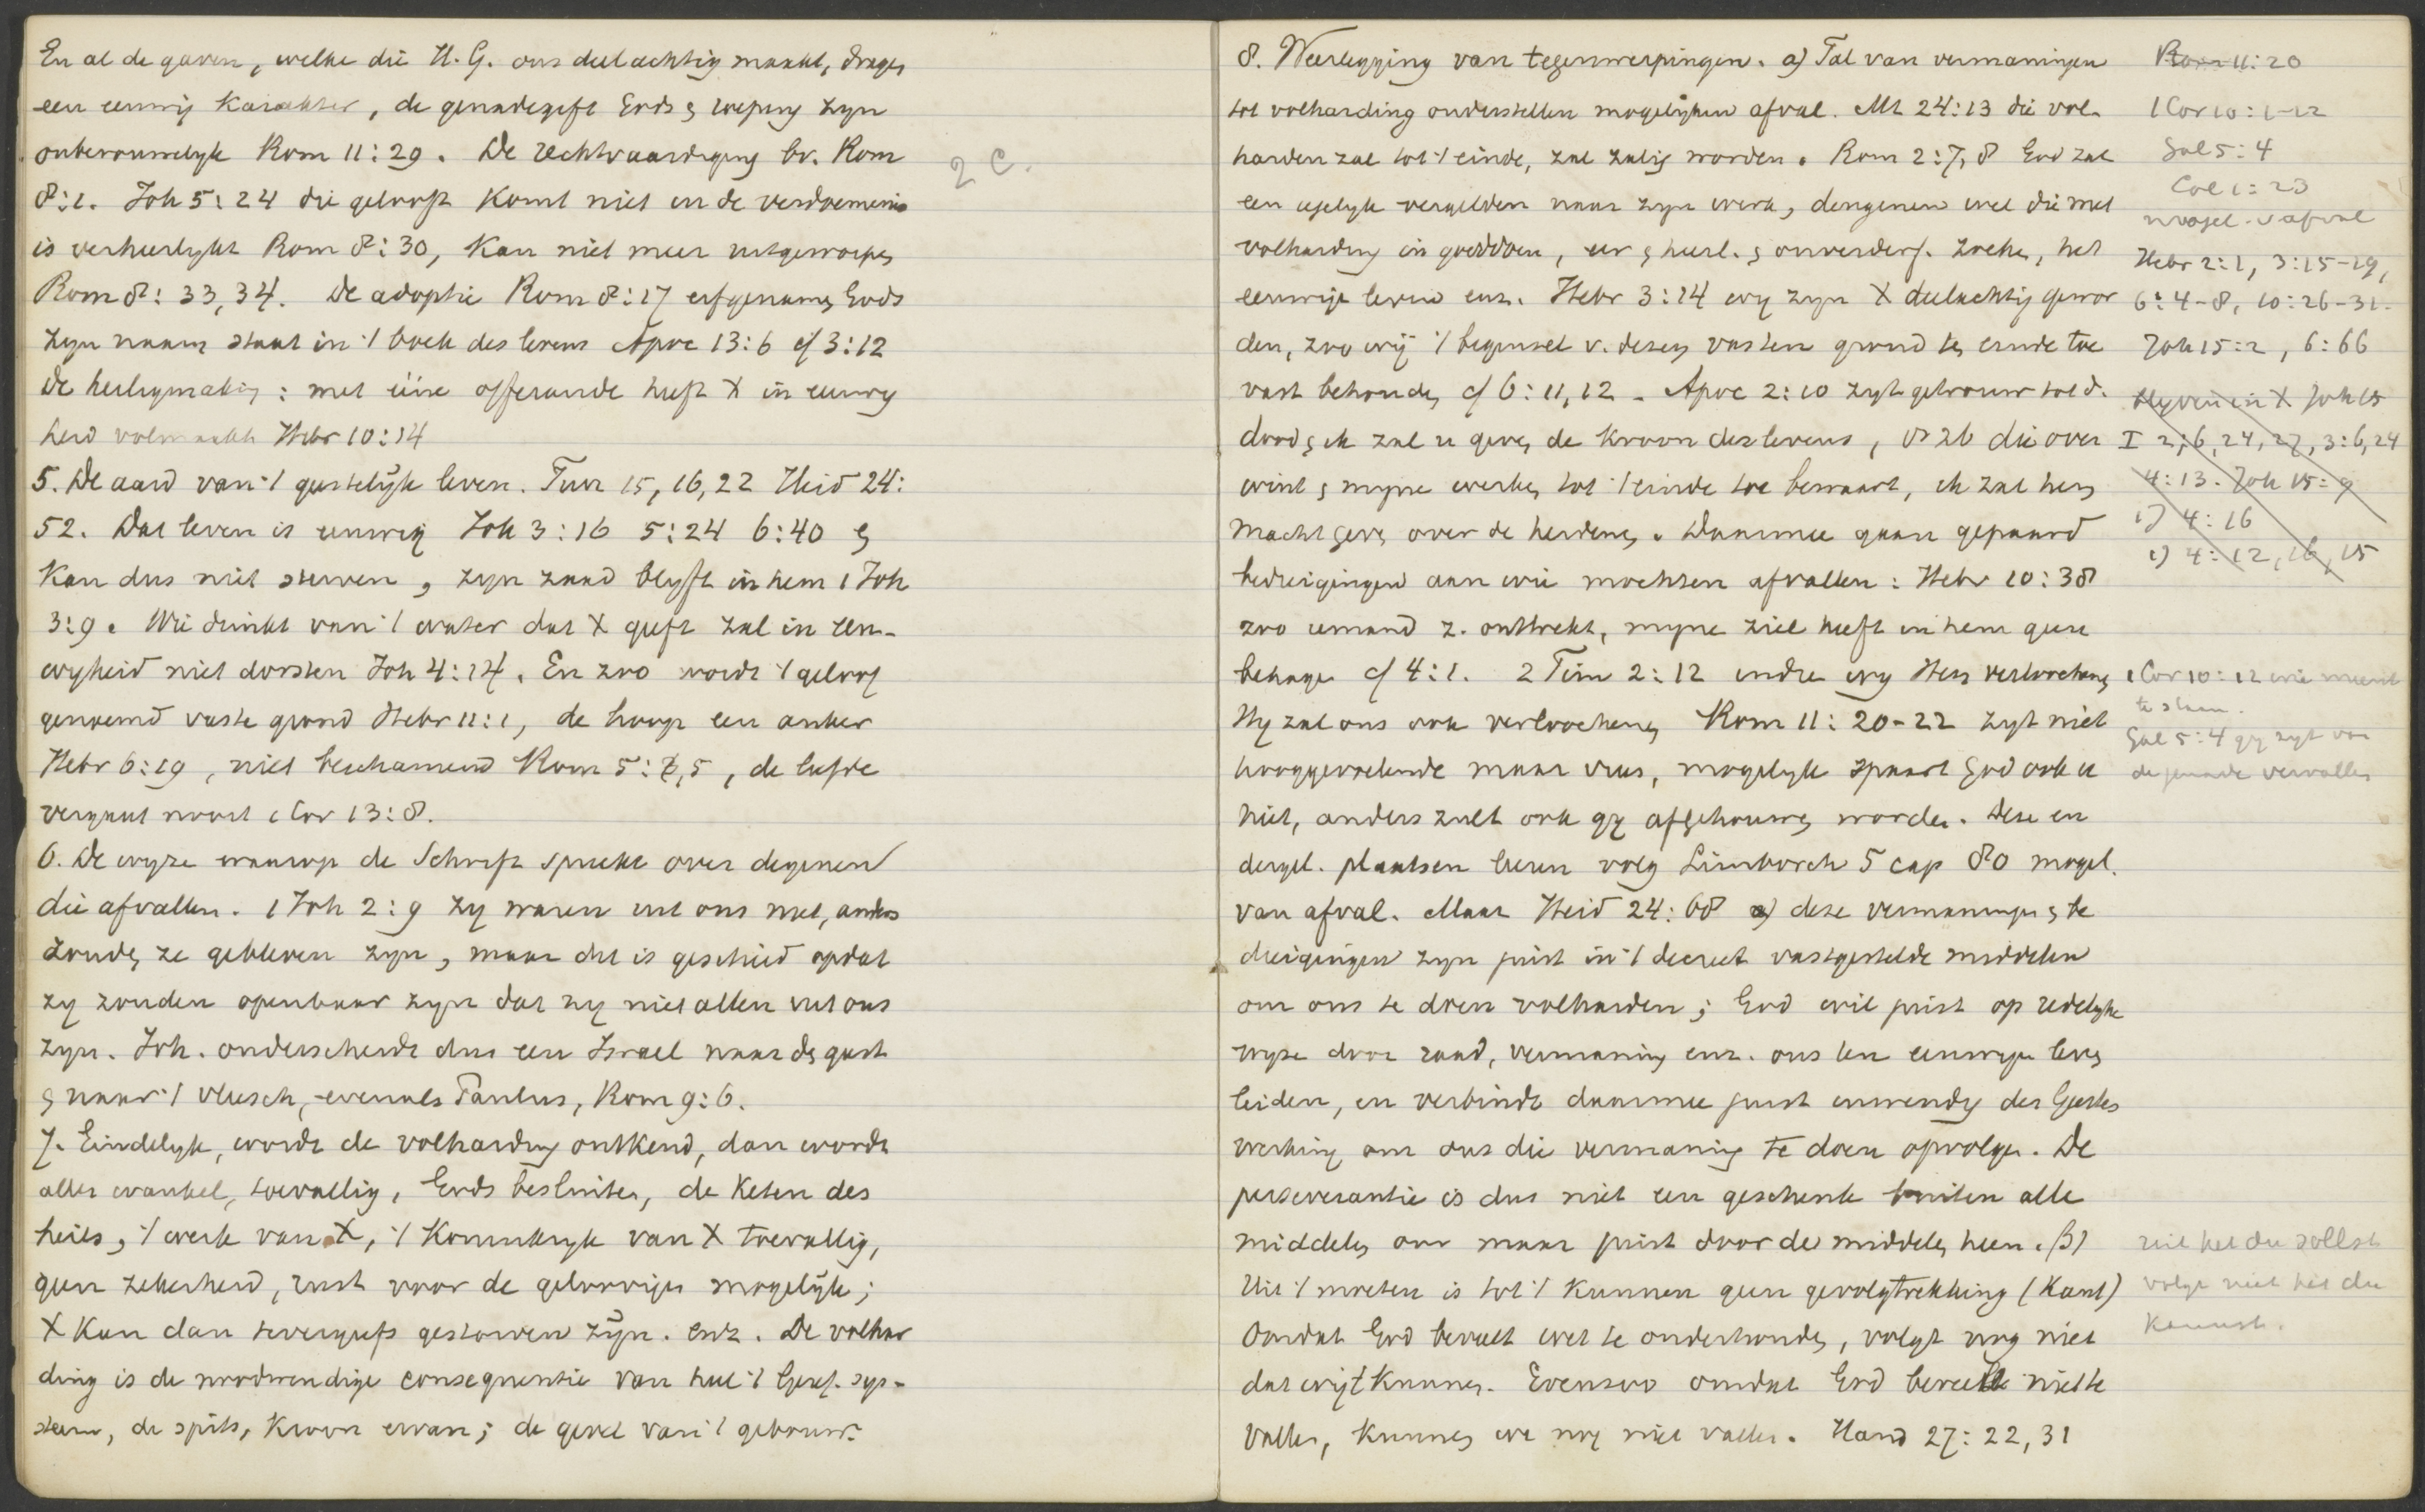 En al de gaven, welke die H. G. ons deelachtig maakt, dragen
een eeuwig karakter, de genadegift Gods & roeping zyn
onberouwelyk Rom 11:29. De rechtvaardiging bv. Rom
8:1. Joh 5:24 die gelooft komt niet in de verdoemenis
is verheerlykt Rom 8:30, kan niet meer uitgeworpen
Rom 8:33,34. De adoptie Rom 8:17 erfgenamen Gods
zyn naam staat in 't boek des levens Apoc 13:6 cf 3:12
De heiligmaking: met ééne offerande heeft X in eeuwig
heid volmaakt Hebr 10:14
5. De aard van 't geestelyk leven. Turr 15,16,22 Heid 24:
52. Dat leven is eeuwig Joh 3:16 5:24 6:40 &
kan dus niet sterven, zyn zaad blyft in hem 1 Joh
3:9. Wie drinkt van 't water dat X geeft zal in eeu-
wygheid niet dorsten Joh 4:14. En zoo wordt 't geloof
genoemd vaste grond Hebr 11:1, de hoop een anker
Hebr 6:19, niet beschamend Rom 5: 5, de liefde
vergaat nooit 1 Cor 13:8.
6. De wyze waarop de Schrift spreekt over degenen
die afvallen. 1 Joh 2:9 zy waren uit ons niet, anders
zouden ze gebleven zyn, maar dit is geschied opdat
zy zouden openbaar zyn dat zy niet allen uit ons
zyn. Joh. onderscheidt dus een Israel naar den geest
& naar 't vleesch, evenals Paulus, Rom 9:6.
7. Eindelyk, wordt de volharding ontkend, dan wordt
alles wankel, toevallig, Gods besluiten, de keten des
heils, 't werk van X, 't Koninkryk van X toevallig,
geen zekerheid, rust voor de geloovigen mogelyk;
X kan dan tevergeefs gestorven zyn. enz. De volhar
ding is de noodwendige consequentie van heel 't Geref. sys-
steem, de spits, kroon ervan; de gevel van 't gebouw.
2 C.
8. Weerlegging van tegenwerpingen. a) Tal van vermaningen
tot volharding onderstellen mogelyken afval. Mt 24:13 die vol-
harden zal tot 't einde, zal zalig worden. Rom 2:7,8 God zal
een iegelyk vergelden naar zyn werk, dengenen wel die met
volharding in goeddoen, eer & heerl. & onverderf. zoeken, het
eeuwige leven enz. Hebr 3:14 wy zyn X deelachtig gewor
den, zoo wij 't beginsel v. dezen vasten grond ten einde toe
vast behouden cf 6:11,12. Apoc 2:10 zyt getrouw tot d.
dood & ik zal u geven de kroon des levens, vs 26 die over
wint & myne werken tot 't einde toe bewaart, ik zal hem
macht geven over de heidenen. Daarmee gaan gepaard
bedreigingen aan wie mochten afvallen: Hebr 10:38
zoo iemand z. onttrekt, myne ziel heeft in hem geen
behagen cf 4:1. 2 Tim 2:12 indien wy Hem verloochenen
Hy zal ons ook verloochenen Rom 11:20-22 zyt niet
hooggevoelende maar vrees, mogelyk spaart God ook u
niet, anders zult ook gy afgehouwen worden. Deze en
dergel. plaatsen leeren volg Limborch 5 cap 80 mogel.
van afval. Maar Heid 24:68 a) deze vermaningen & be
dreigingen zyn juist in 't decreet vastgestelde middelen
om ons te doen volharden; God wil juist op redelyke
wyze door raad, vermaning enz. ons ten eeuwigen leven
leiden, en verbindt daarmee juist inwendig des Geestes
werking om ons die vermaning te doen opvolgen. De
perseverantie is dus niet een geschenk buiten alle
middelen om maar juist door de middelen heen. β)
Uit 't moeten is tot 't kunnen geen gevolgtrekking (Kant)
Omdat God beveelt wet te onderhouden, volgt nog niet
dat wij't kunnen. Evenzoo omdat God beveelt niet te
vallen, kunnen we nog niet vallen. Hand 27:22,31
Rom 11:20
1 Cor 10:1-12
Gal 5:4
Col 1:23
mogel. v afval
Hebr 2:1, 3:15-19,
6:4-8, 10:26-31.
Joh 15:2, 6:66
blyven in X Joh 15
I 2:6, 24, 27, 3:6,24
4:13. Joh 15:9
4:16
4:12, 16, 15
1 Cor 10:12 wie meent
te staan.
Gal 5:4 gy zyt van
de genade vervallen
uit het du sollst
volgt niet het du
kannst.